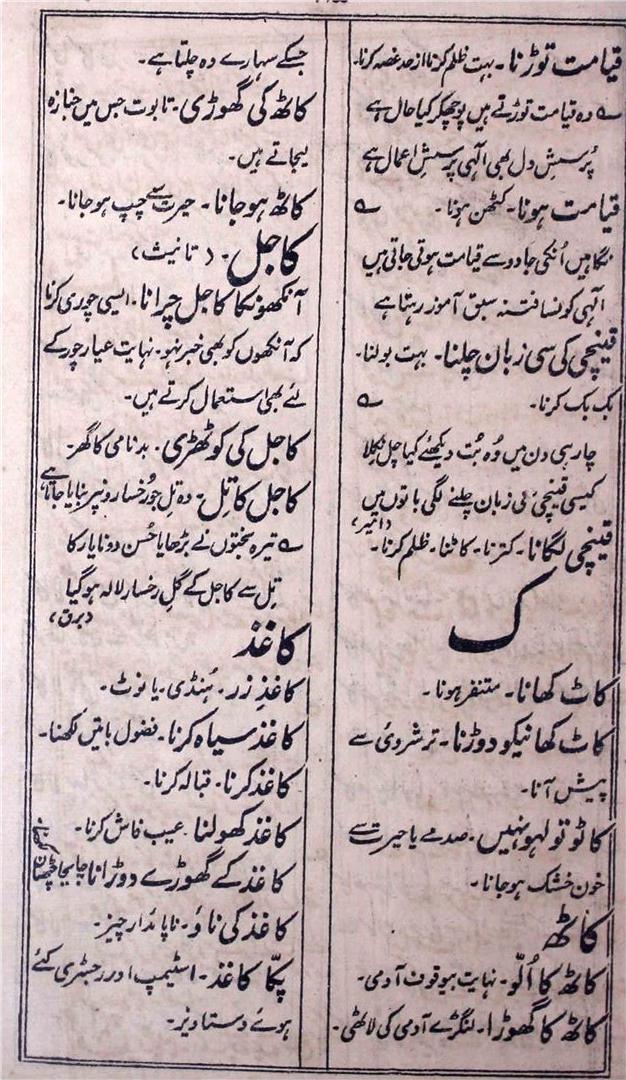 قیامت توڑنا۔ بہت ظلم کرنا ازحد غصہ کرنا۔
؎ وہ قیامت توڑتے ہیں پوچھکر کیا حال ہے
پُرسشِ دل بھی الٰہی پرسشِ اعمال ہے
قیامت ہونا۔ کٹھن ہونا۔ ؎
نگاہیں اُنکی جادو سے قیامت ہوتی جاتی ہیں
الٰہی کونسا فتنہ سبق آموز رہتا ہے
قینچی کی سی زبان چلنا۔ بہت بولنا۔
بک بک کرنا۔ ؎
چار ہی دن میں وُہ بُت دیکھئے کیا چل نکلا
کیسی قینچی سی زبان چلنے لگی باتوں میں
قینچی لگانا۔ کترنا۔ کاٹنا۔ ظلم کرنا۔
ک
کاٹ کھانا۔ متنفر ہونا۔
کاٹ کھانیکو دوڑنا۔ ترشروئی سے
پیش آنا۔
کاٹو تو لہو نہیں۔ صدمے یا حیرت سے
خون خشک ہوجانا۔
کاٹھ
کاٹھ کا اُلّو۔ نہایت بیوقوف آدمی۔
کاٹھ کا گھوڑا۔ لنگڑے آدمی کی لاٹھی۔
جسکے سہارے وہ چلتا ہے۔
کاٹھ کی گھوڑی۔ تابوت جس میں جنازہ
لیجاتے ہیں۔
کاٹھ ہوجانا۔ حیرت سے چپ ہوجانا۔
کاجل۔ (تانیث)
آنکھونکا کاجل چرانا۔ ایسی چوری کرنا
کہ آنکھوں کو بھی خبر نہو۔ نہایت عیار چور کے
لئے بھی استعمال کرتے ہیں۔
کاجل کی کوٹھڑی۔ بدنامی کا گھر۔
کاجل کا تِل۔ وہ تل جو رُخسارونپر بنایا جاتا ہے
؎ تیرہ بختوں نے بڑھایا حُسن دونا یار کا
تِل سے کاجل کے گلِ رخسار لالہ ہوگیا
(برق)
کاغذ
کاغذِ زر۔ ہُنڈی۔ یا نوٹ۔
کاغذ سیاہ کرنا۔ فضول باتیں لکھنا۔
کاغذ کرنا۔ قبالہ کرنا۔
کاغذ کھولنا۔ عیب فاش کرنا۔
کاغذ کے گھوڑے دوڑانا جابجا
کاغذ کی ناؤ۔ ناپائدار چیز۔
پکّا کاغذ۔ اسٹیمپ اور رجسٹری کئے
ہوئے دستاویز۔